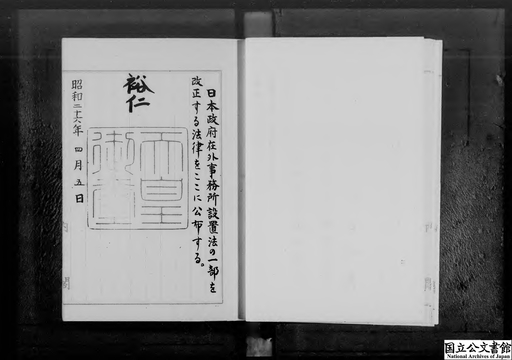 日本政府在外事務所設置法の一部を
改正する法律をここに公布する。
裕仁
天皇
御璽
昭和二十六年四月五日
国立公文書館
National Archives of Japan